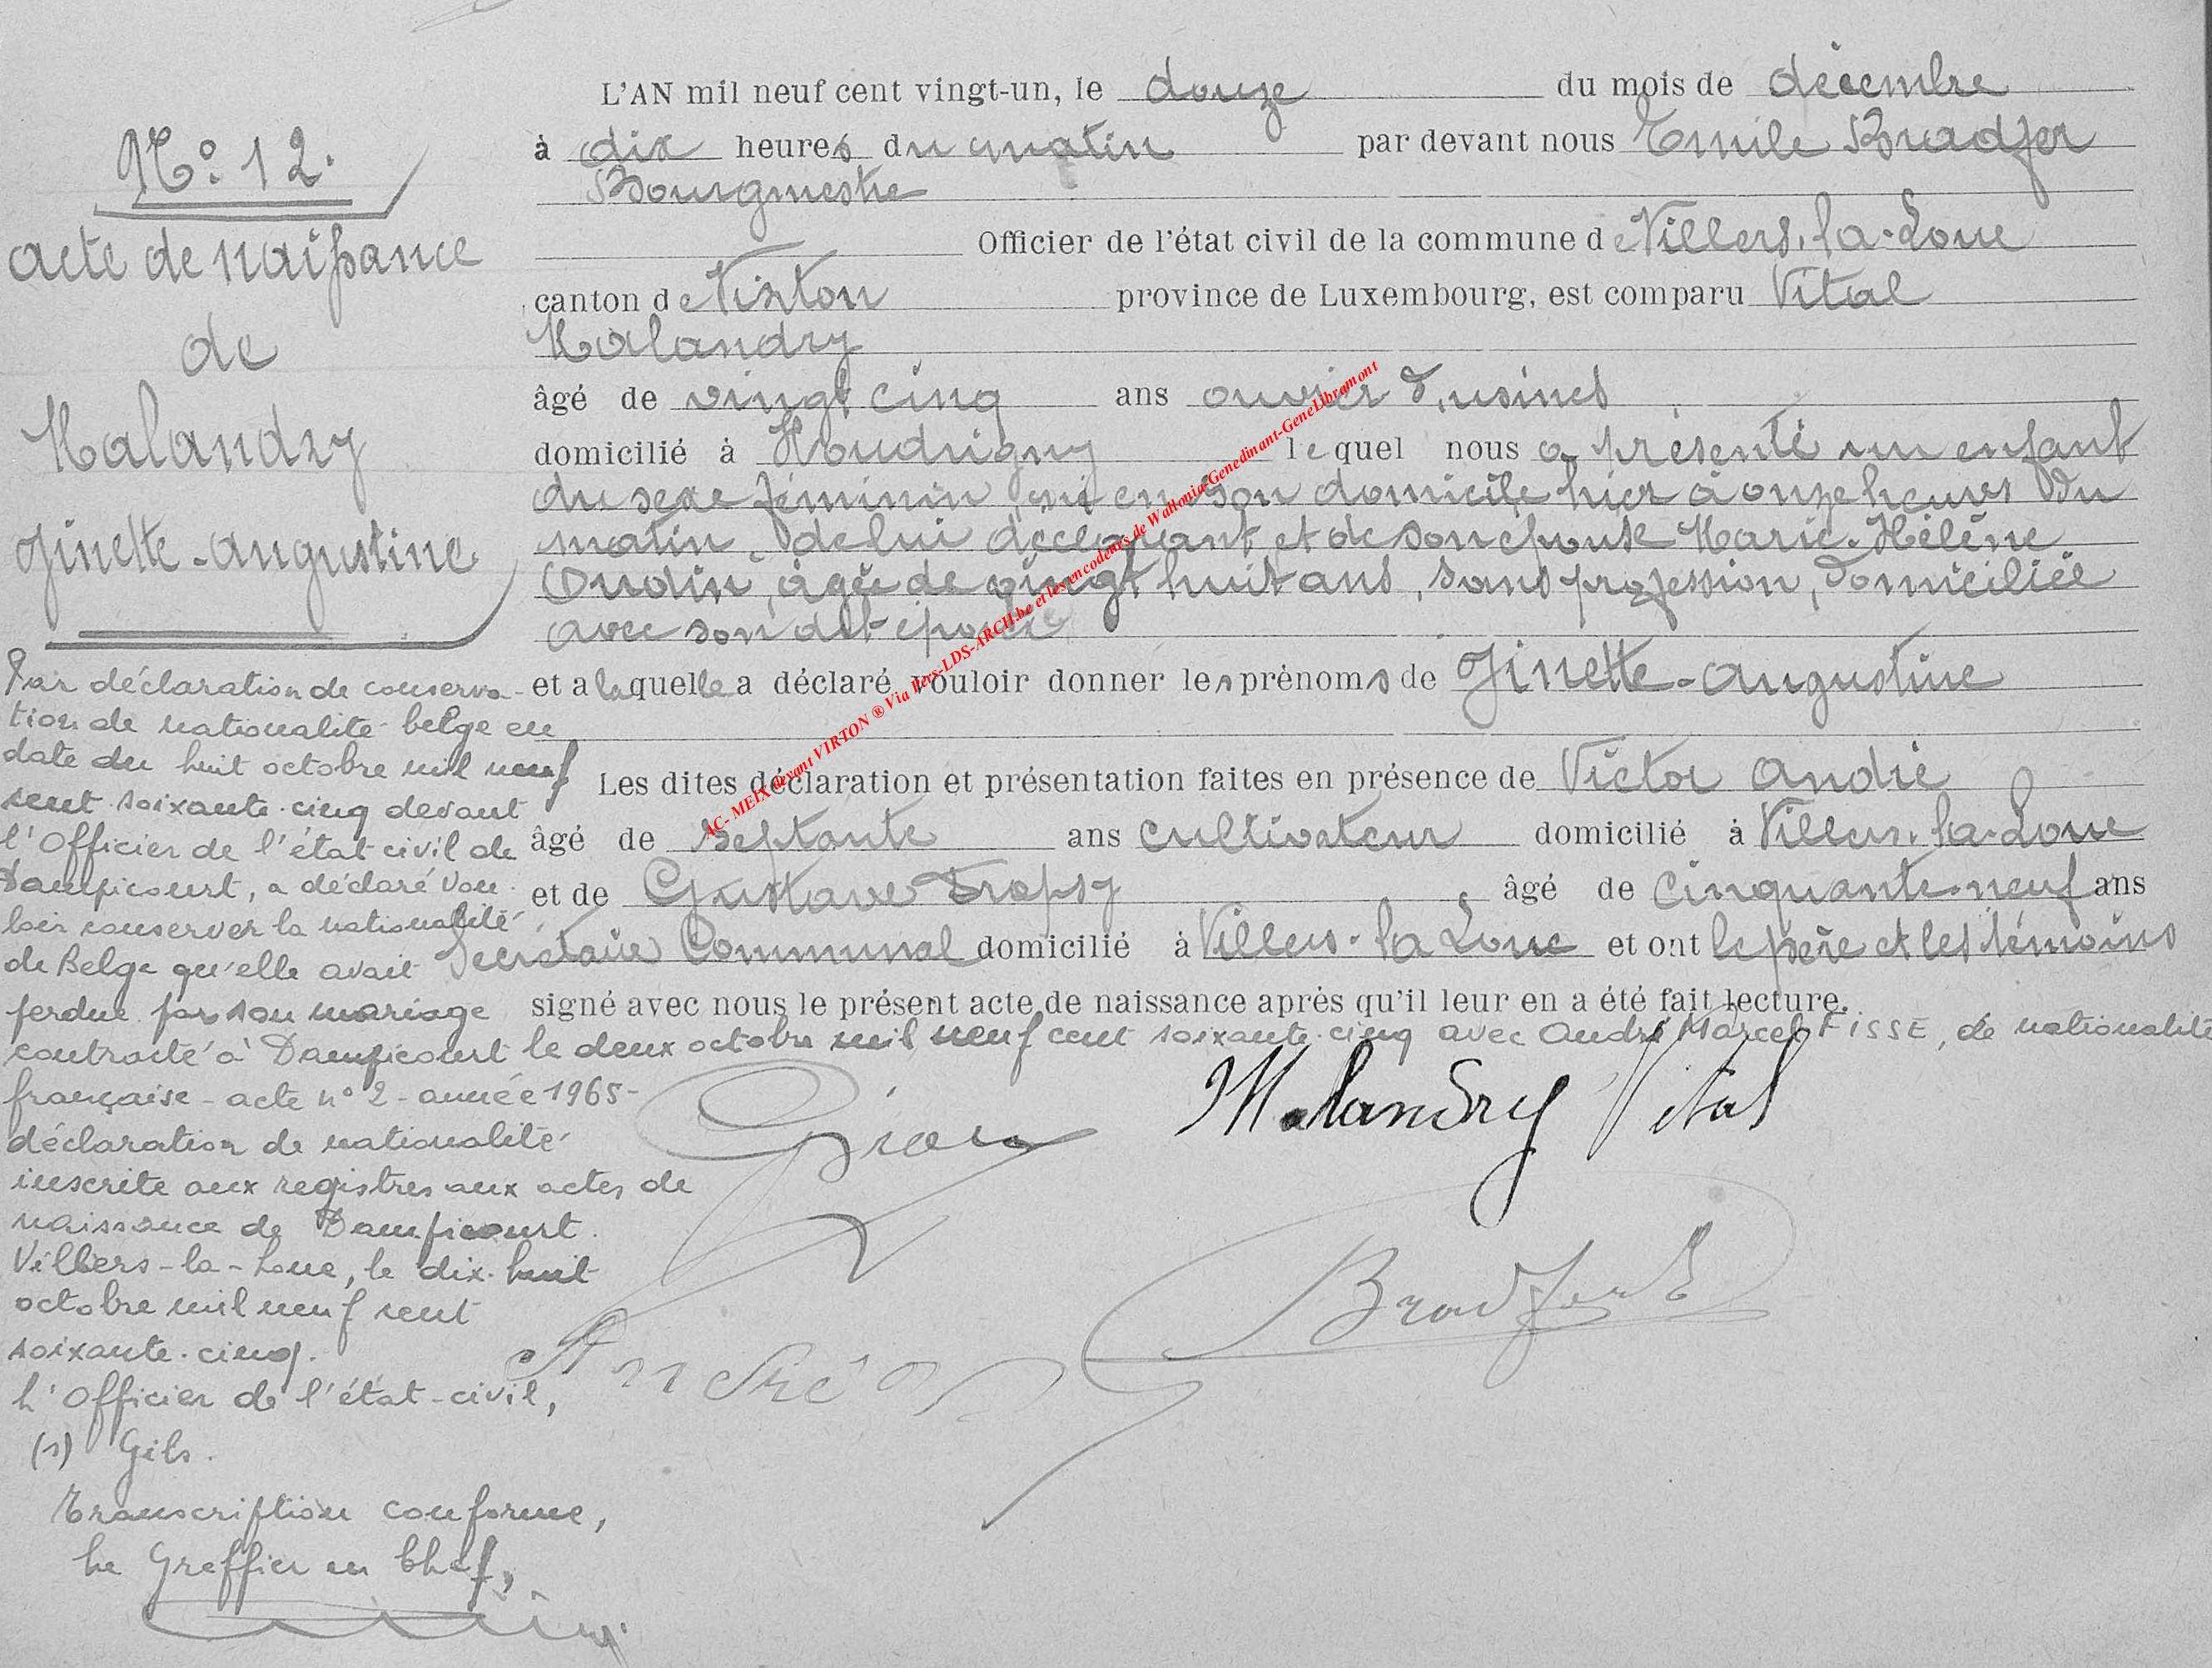 N° 12.
acte de naissance
de
Malandry
Ginette-Augustine
L'AN mil neuf cent vingt-un, le douze du mois de décembre
à dix heures du matin par devant nous Emile Bradfer
Bourgmestre
Officier de l'état civil de la commune de Villers-la-Loue
canton de Virton province de Luxembourg, est comparu Vital
Malandry
âgé de vingt cinq ans ouvrier d'usines
domicilié à Houdrigny lequel nous a présenté un enfant
du sexe féminin, né en son domicile hier à onze heures du
matin, de lui déclarant et de son épouse Marie-Hélène
Oudin, âgée de vingt huit ans, sans profession, domiciliée
avec son dit époux
et a laquelle a déclaré vouloir donner les prénoms de Ginette-Augustine
Les dites déclaration et présentation faites en présence de Victor André
âgé de septante ans cultivateur domicilié à Villers-la-Loue
et de Gustave âgé de cinquante-neuf ans
Secrétaire Communal domicilié à Villers-la-Loue et ont le père et les témoins
signé avec nous le présent acte de naissance après qu'il leur en a été fait lecture.
Par déclaration de conserva-
tion de nationalité belge en
date du huit octobre mil neuf
cent soixante-cinq devant
l'Officier de l'état-civil de
Dampicourt, a déclaré vou-
loir conserver la nationalité
de Belge qu'elle avait
perdue par son mariage
contracté à Dampicourt le deux octobre mil neuf cent soixante-cinq avec André Marcel FISSE, de nationalité
française - acte n° 2 - année 1965 -
déclaration de nationalité
inscrite aux registres aux actes de
naissance de Dampicourt.
Villers-la-Loue, le dix-huit
octobre mil neuf cent
soixante-cinq.
L'Officier de l'état-civil,
(s) Gils.
Transcription conforme,
Le Greffier en Chef,
Malandry Vital
Bradfer E
André V
AC- MEIX devant VIRTON ® Via Iters-LDS-ARCH.be et les encodeurs de Wallonia-Genedinant-GeneLibramont